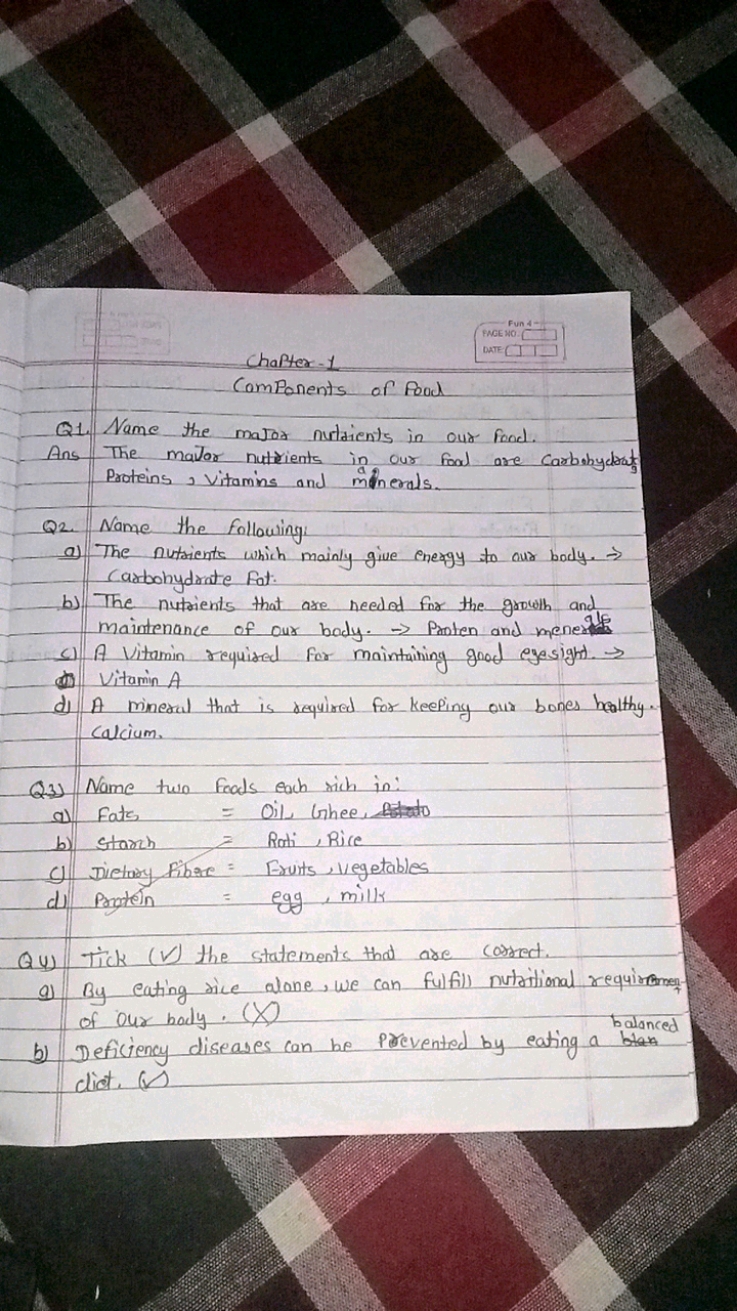 Fun 4
PAGE NO.
DATE
Chapter-1
Components of Food
Q1. Name the major nutrients in our food.
Ans The major nutrients in our food are Carbohydrat
Proteins, Vitamins and minerals.
Q2. Name the following:
a) The nutrients which mainly give energy to our body. →
Carbohydrate Fat.
b) The nutrients that are needed for the growth and
maintenance of our body. → Proten and menerals
c) A Vitamin required for maintaining good eyesight. →
Vitamin A
d) A mineral that is required for keeping our bones healthy.
Calcium.
Q3) Name two foods each rich in:
a) Fats = Oil, Ghee, Potato
b) Starch = Roti, Rice
c) Dietary Fibere = Fruits, vegetables
d) Protein = egg, milk
Q4) Tick (✓) the statements that are correct.
a) By eating rice alone, we can fulfill nutritional
of our body. (X)
b) Deficiency diseases can be prevented by eating a balanced
diet. (✓)